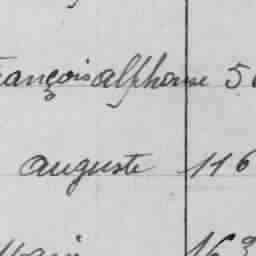 françois alphonse 5
auguste 116
163